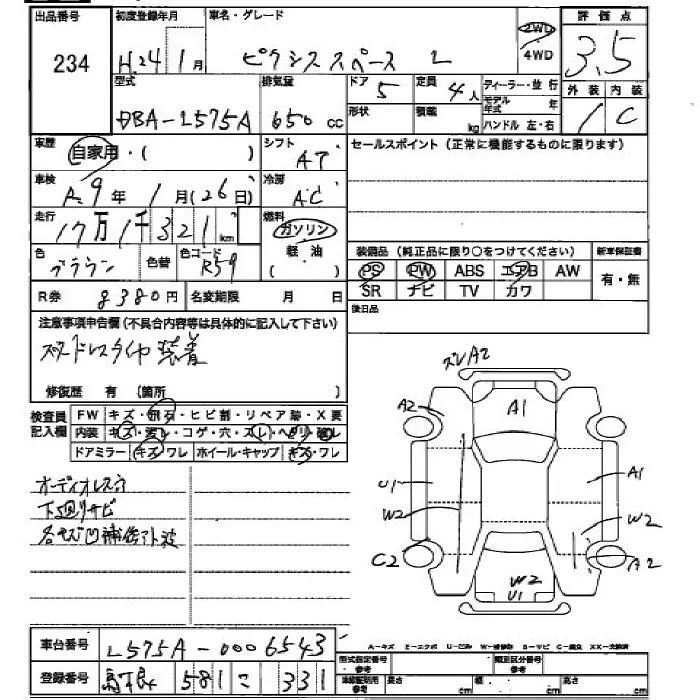 出品番号 初度登録年月 車名・グレード 評価点
234 H.24 1月 ピクシススペース L 2WD 4WD 3.5
型式 排気量 ドア 定員 ディーラー・並行 外装 内装
DBA-L575A 650cc 5 4人 モデル年式 年 1 C
形状 積載 kg ハンドル 左・右
車歴 自家用・( ) シフト AT セールスポイント(正常に機能するものに限ります)
車検 R.9年1月(26日) 冷房 AC
走行 17万1千321km 燃料 ガソリン 軽油 ( )
色 ブラウン 色替 色コード R59
装備品(純正品に限り○をつけてください) 新車保証書
PS PW ABS エアB AW 有・無
SR ナビ TV カワ
R券 8380円 名変期限 月 日 後日品
注意事項申告欄(不具合内容等は具体的に記入して下さい)
スタッドレスタイヤ装着
修復歴 有 (箇所 )
検査員記入欄 FW キズ・飛石・ヒビ割・リペア跡・X要
内装 キズ・汚レ・コゲ・穴・スレ・ヘタリ・破レ
ドアミラー キズ・ワレ ホイール・キャップ キズ・ワレ
オーディオレス
下廻りサビ
各キズ凹補修小波
ズレA2
A2 A1
U1 A1
W2 W2
C2 A2
W2
U1
A-キズ E-エクボ U-凹ミ W-補修跡 S-サビ C-腐食 XX-交換済
車台番号 L575A-0006543
登録番号 島根 581 こ 331
型式指定番号 参考 類別区分番号 参考
車検証明用 参考 長さ cm 幅 cm 高さ cm